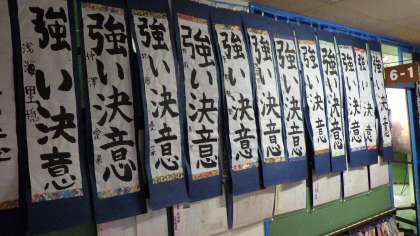 強い決意
強い決意
強い決意
強い決意
強い決意
強い決意
強い決意
強い決意
強い決意
強い決意
強い決意
強い決意
6-1